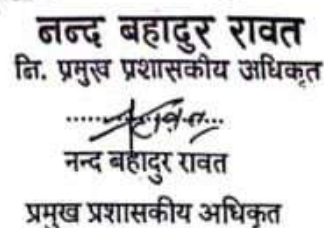 नन्द बहादुर रावत
नि. प्रमुख प्रशासकीय अधिकृत
नन्द बहादुर रावत
प्रमुख प्रशासकीय अधिकृत